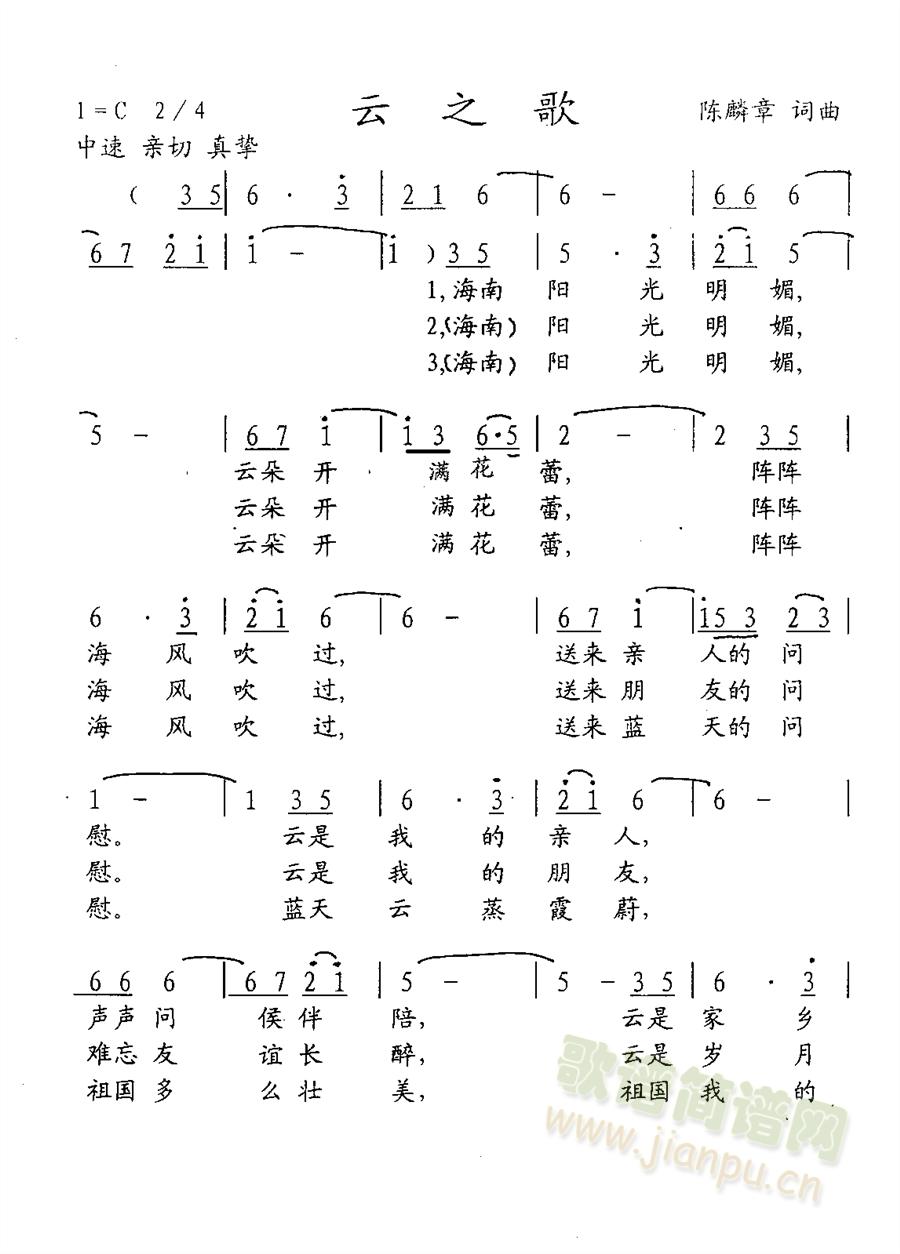 1=C 2/4 云之歌 陈麟章 词曲
中速 亲切 真挚
( 3 5 | 6 · 3 | 2 1 6 | 6 - | 6 6 6 |
6 7 2 1 | 1 - | 1 ) 3 5 | 5 · 3 | 2 1 5 |
1,海南 阳 光 明 媚,
2,(海南) 阳 光 明 媚,
3,(海南) 阳 光 明 媚,
5 - | 6 7 1 | 1 3 6·5 | 2 - | 2 3 5 |
云朵 开 满 花 蕾, 阵阵
云朵 开 满 花 蕾, 阵阵
云朵 开 满 花 蕾, 阵阵
6 · 3 | 2 1 6 | 6 - | 6 7 1 | 1 5 3 2 3 |
海 风 吹 过, 送来 亲 人的 问
海 风 吹 过, 送来 朋 友的 问
海 风 吹 过, 送来 蓝 天的 问
1 - | 1 3 5 | 6 · 3 | 2 1 6 | 6 - |
慰。 云是 我 的 亲 人,
慰。 云是 我 的 朋 友,
慰。 蓝天 云 蒸 霞 蔚,
6 6 6 | 6 7 2 1 | 5 - | 5 - 3 5 | 6 · 3 |
声声 问 侯 伴 陪, 云是 家 乡
难忘 友 谊 长 醉, 云是 岁 月
祖国 多 么 壮 美, 祖国 我 的
歌谱简谱网
www.jianpu.cn